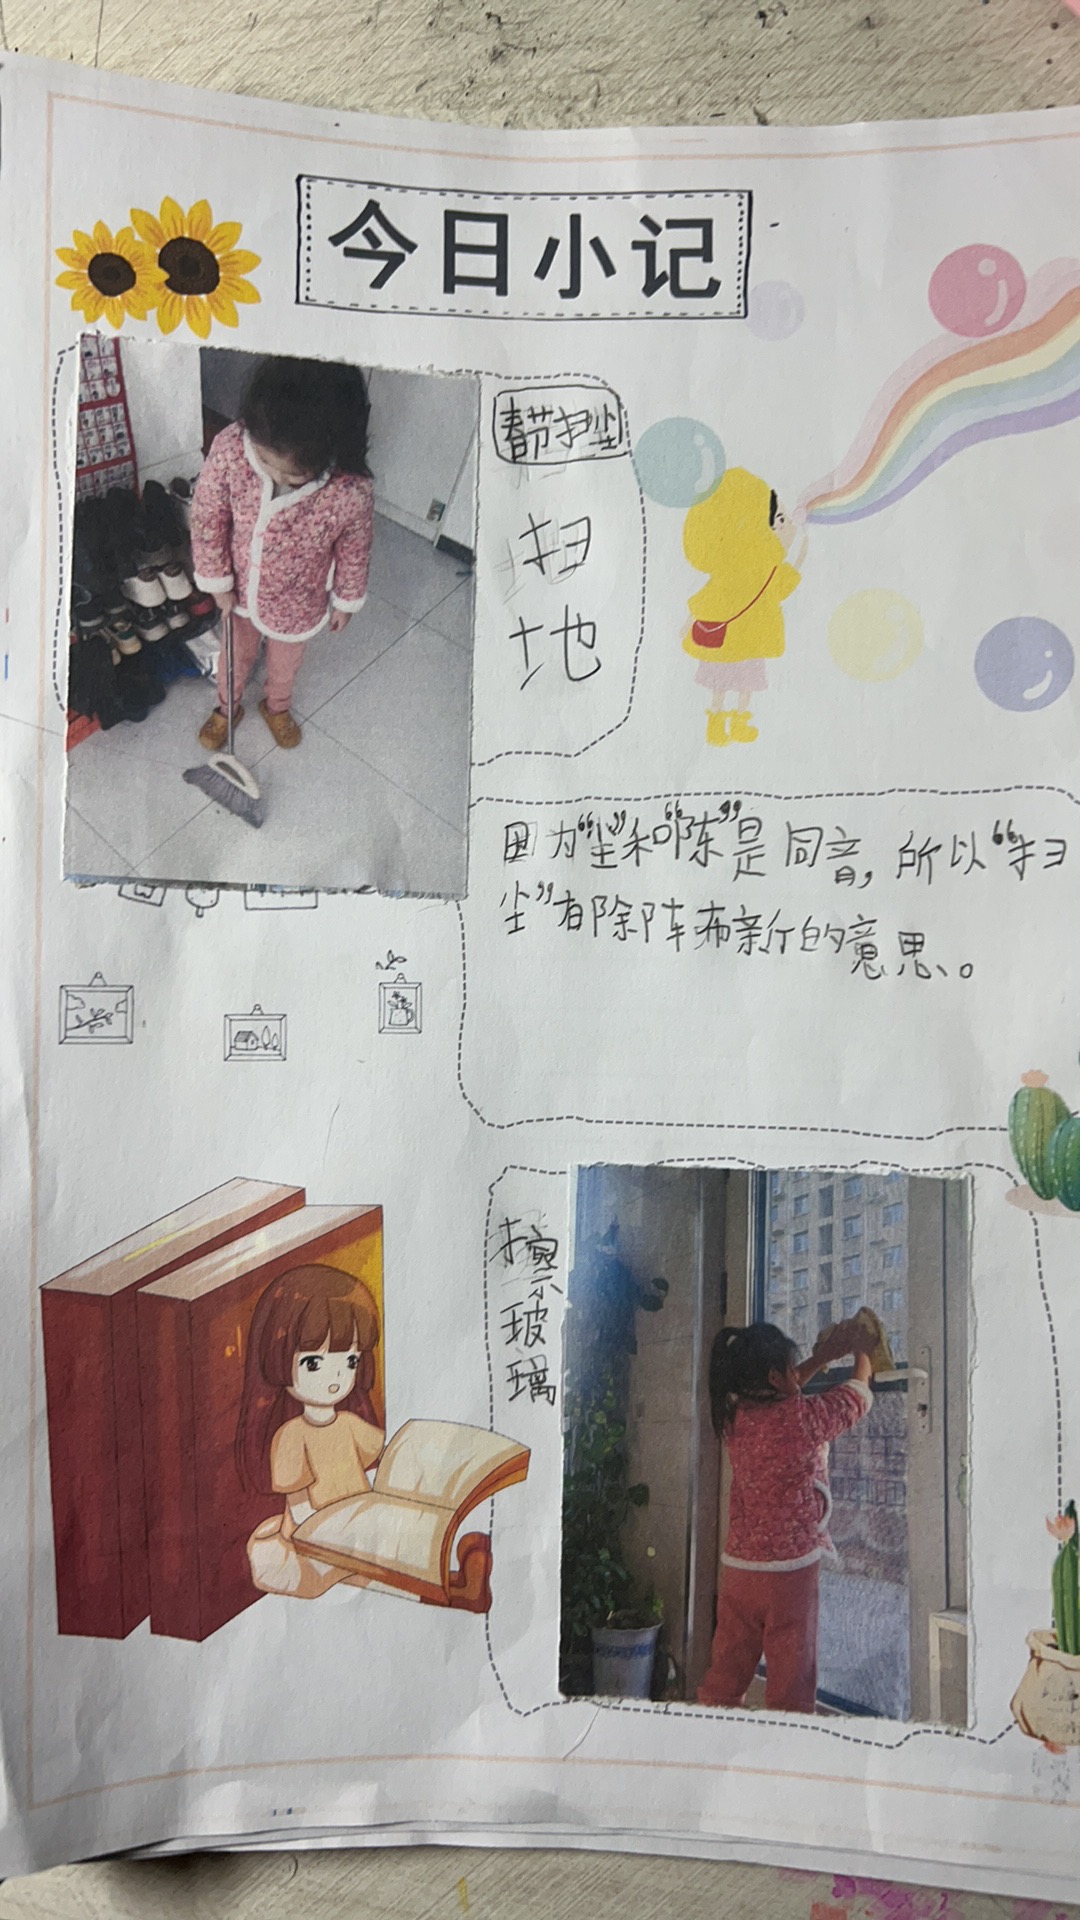 今日小记
春节扫尘
扫
地
因为“尘”和“陈”是同音，所以“扫
尘”有除陈布新的意思。
擦
玻
璃